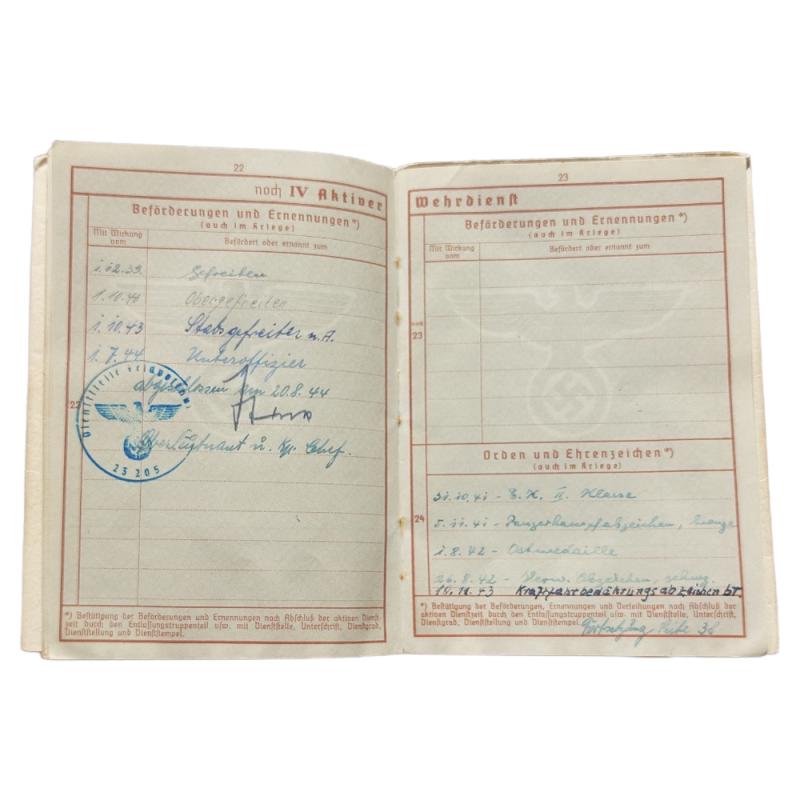 22
noch IV Aktiver
Beförderungen und Ernennungen*)
(auch im Kriege)
Mit Wirkung vom
Befördert oder ernannt zum
1.12.39 Gefreiten
1.10.41 Obergefreiter
1.10.43 Stabsgefreiter n.A.
1.7.44 Unteroffizier
abgeschlossen am 20.8.44
22
Oberleutnant u. Kp. Chef.
Dienststelle Feldpostnr. 25205
*) Bestätigung der Beförderungen und Ernennungen nach Abschluß der aktiven Dienst-
zeit durch den Entlassungstruppenteil usw. mit Dienststelle, Unterschrift, Dienstgrad,
Dienststellung und Dienststempel.
23
Wehrdienst
Beförderungen und Ernennungen*)
(auch im Kriege)
Mit Wirkung vom
Befördert oder ernannt zum
noch
23
Orden und Ehrenzeichen*)
(auch im Kriege)
31.10.41 - E.K. II. Klasse
24
5.11.41 - Panzerkampfabzeichen, bronze
1.8.42 - Ostmedaille
26.8.42 - Verw. Abzeichen, schwz.
Kraftfahrbewährungsabzeichen br.
*) Bestätigung der Beförderungen, Ernennungen und Verleihungen nach Abschluß der
aktiven Dienstzeit durch den Entlassungstruppenteil usw. mit Dienststelle, Unterschrift,
Dienstgrad, Dienststellung und Dienststempel.
Fortsetzung Seite